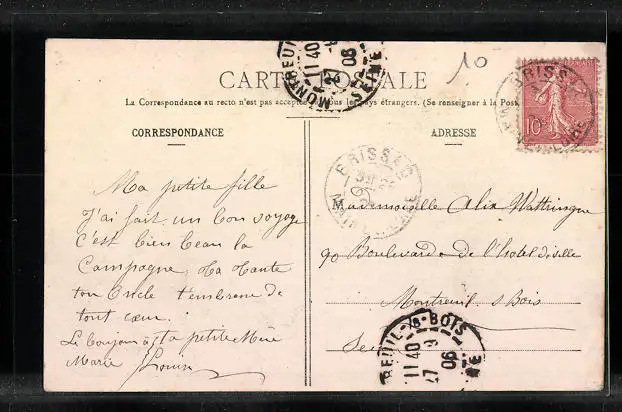 CARTE POSTALE
10
La Correspondance au recto n'est pas acceptée tous les pays étrangers. (Se renseigner à la Post
CORRESPONDANCE
ADRESSE
Ma petite fille
J'ai fait un bon voyage
C'est bien beau la
Campagne, Ta Tante
ton Oncle t'embrasse de
tout cœur.
Le bonjour à ta petite Mère
Marie Louise
Mademoiselle Alix Wattringue
90 Boulevard de l'hotel de ville
Montreuil s Bois
Sei
BRISSAC
MAINE-ET-LOIRE
10
MONTREUIL
SEINE
11 40
06
BRISSAC
MAINE
REUIL-S-BOIS
11 40
27 9
06